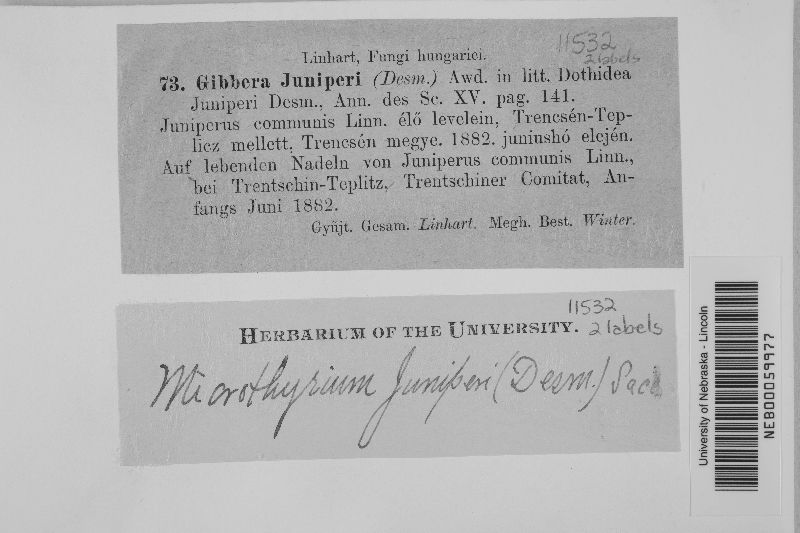 11532
2 labels
Linhart, Fungi hungarici.
73. Gibbera Juniperi (Desm.) Awd. in litt. Dothidea
Juniperi Desm., Ann. des Sc. XV. pag. 141.
Juniperus communis Linn. élő levelein, Trencsén-Tep-
licz mellett, Trencsén megye. 1882. juniushó elején.
Auf lebenden Nadeln von Juniperus communis Linn.,
bei Trentschin-Teplitz, Trentschiner Comitat, An-
fangs Juni 1882.
Gyűjt. Gesam. Linhart. Megh. Best. Winter.
11532
HERBARIUM OF THE UNIVERSITY. 2 labels
Microthyrium Juniperi (Desm.) Sacc
University of Nebraska - Lincoln
NEB00059977